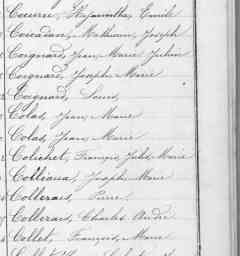 Coeurre, Hyacinthe, Emile
Coicadan, Mathurin, Joseph
Coignard, Jean, Marie Julien
Coignard, Joseph Marie
Coignard, Louis
Colas, Jean, Marie
Colas, Jean, Marie
Colichet, François, Jules, Marie
Colliaux, Joseph, Marie
Collerais, Pierre
Collerais, Charles André
Collet, François, Marie
Collet